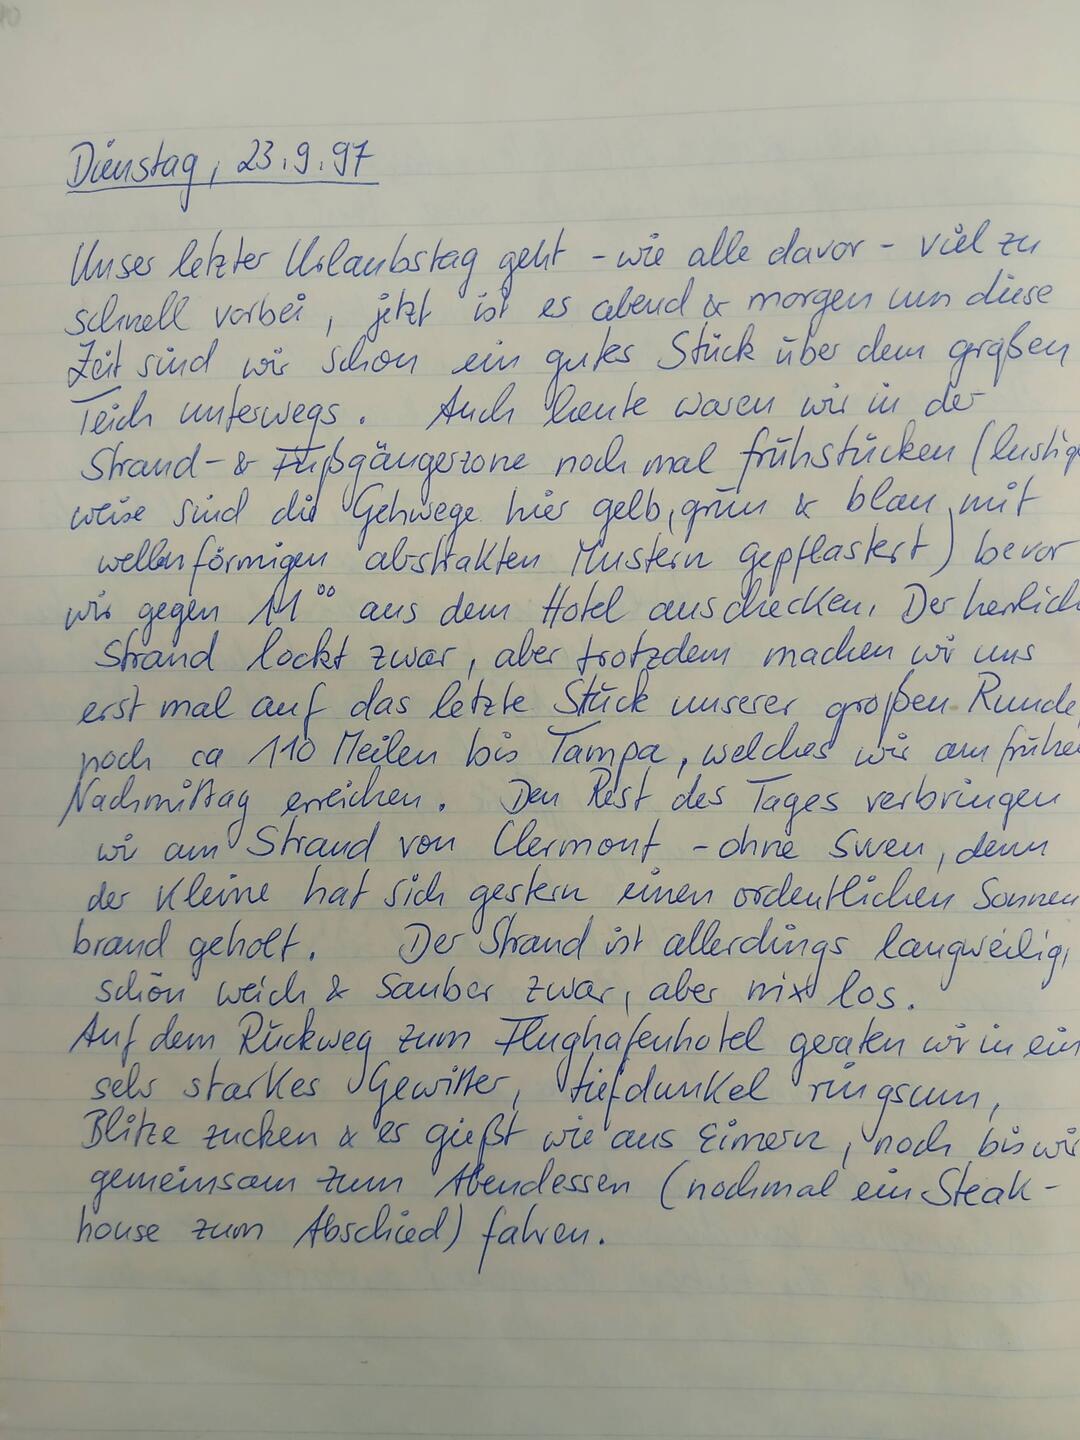 Dienstag, 23.9.97
Unser letzter Urlaubstag geht - wie alle davor - viel zu
schnell vorbei, jetzt ist es abend & morgen um diese
Zeit sind wir schon ein gutes Stück über dem großen
Teich unterwegs. Auch heute waren wir in der
Strand- & Fußgängerzone noch mal frühstücken (lustig
weise sind die Gehwege hier gelb, grün & blau, mit
wellenförmigen abstrakten Mustern gepflastert) bevor
wir gegen 11⁰⁰ aus dem Hotel auschecken. Der herrlich
Strand lockt zwar, aber trotzdem machen wir uns
erst mal auf das letzte Stück unserer großen Runde
noch ca 110 Meilen bis Tampa, welches wir am frühe
Nachmittag erreichen. Den Rest des Tages verbringen
wir am Strand von Clermont - ohne Swen, denn
der Kleine hat sich gestern einen ordentlichen Sonnen
brand geholt. Der Strand ist allerdings langweilig,
schön weich & sauber zwar, aber nix los.
Auf dem Rückweg zum Flughafenhotel geraten wir in ein
sehr starkes Gewitter, tiefdunkel ringsum,
Blitze zucken & es gießt wie aus Eimern, noch bis wir
gemeinsam zum Abendessen (nochmal ein Steak-
house zum Abschied) fahren.